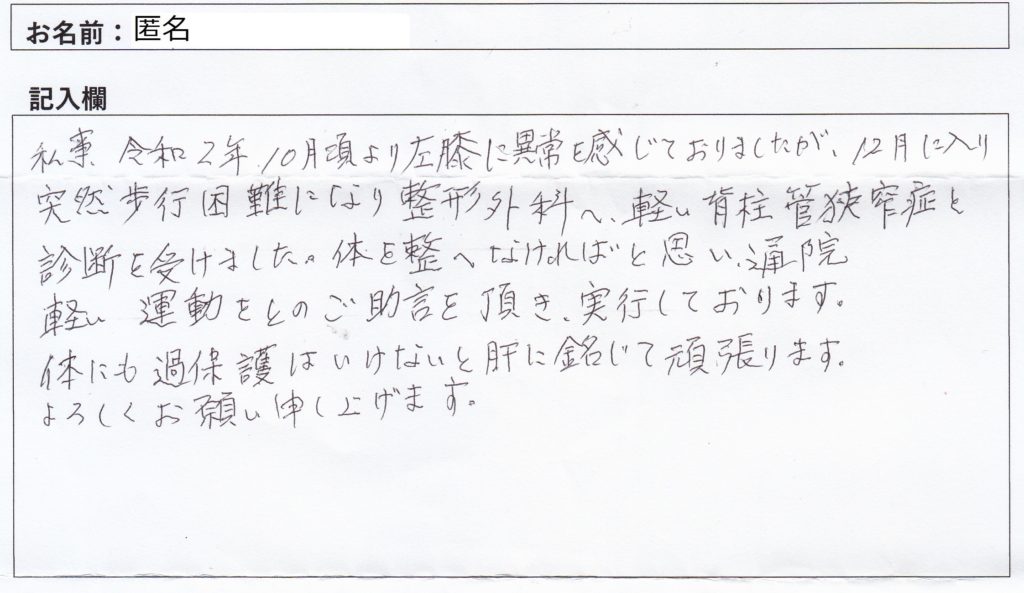 お名前：匿名
記入欄
私事、令和2年、10月頃より左膝に異常を感じておりましたが、12月に入り
突然歩行困難になり整形外科へ、軽い脊柱管狭窄症と
診断を受けました。体を整へなければと思い、通院
軽い 運動をとのご助言を頂き、実行しております。
体にも過保護はいけないと肝に銘じて頑張ります。
よろしくお願い申し上げます。